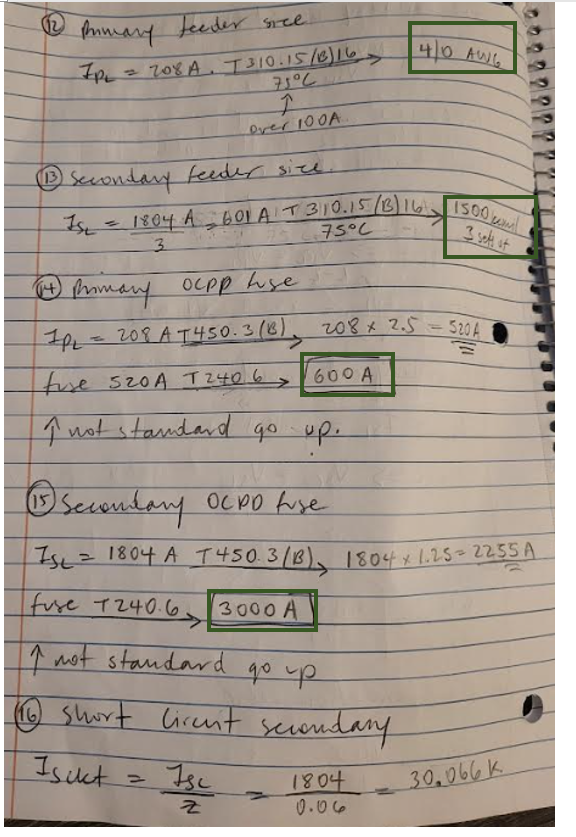 ⑫ Primary feeder size
I_PL = 208 A . T310.15(B)16 → 4/0 AWG
75°C
↑
over 100A
⑬ Secondary feeder size.
I_SL = 1804 A / 3 = 601 A T310.15(B)16 → 1500 kcmil
75°C 3 sets of
⑭ Primary OCPD fuse
I_PL = 208 A T450.3(B) → 208 x 2.5 = 520A
fuse 520A T240.6 → 600 A
↑ not standard go up.
⑮ Secondary OCPD fuse
I_SL = 1804 A T450.3(B) → 1804 x 1.25 = 2255 A
fuse T240.6 → 3000 A
↑ not standard go up
⑯ Short Circuit secondary
I_sckt = I_SC / Z = 1804 / 0.06 = 30.066 K